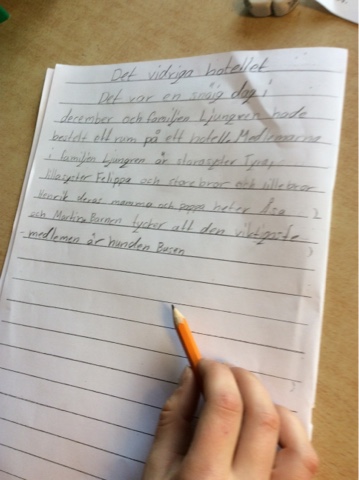 Det vidriga hotellet
Det var en snöig dag i
december och familjen Ljungren hade
bestelt ett rum på ett hotell. Medlemmarna
i familjen Ljungren är storasyster
lillasyster Felippa och storebror och lillebror
Henrik deras mamma och pappa heter Åsa
och Martin. Barnen tycker att den viktigaste
medlemen är hunden Busen